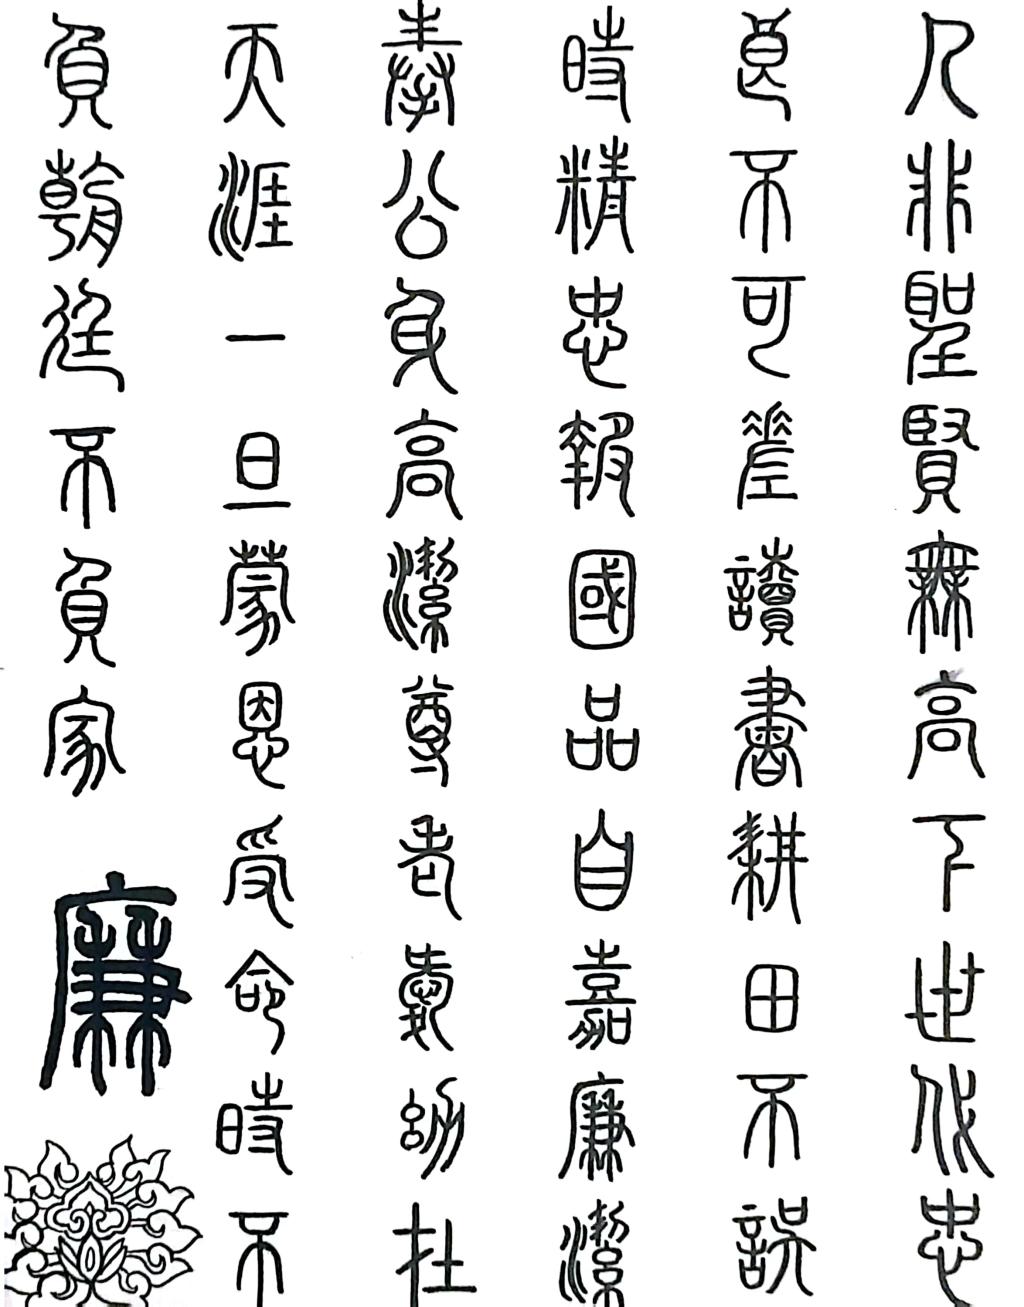 人非聖賢無高下世代忠
良不可差讀書耕田不誤
時精忠報國品自嘉廉潔
奉公身高潔尊老愛幼在
天涯一旦蒙恩受命時不
負朝廷不負家
廉